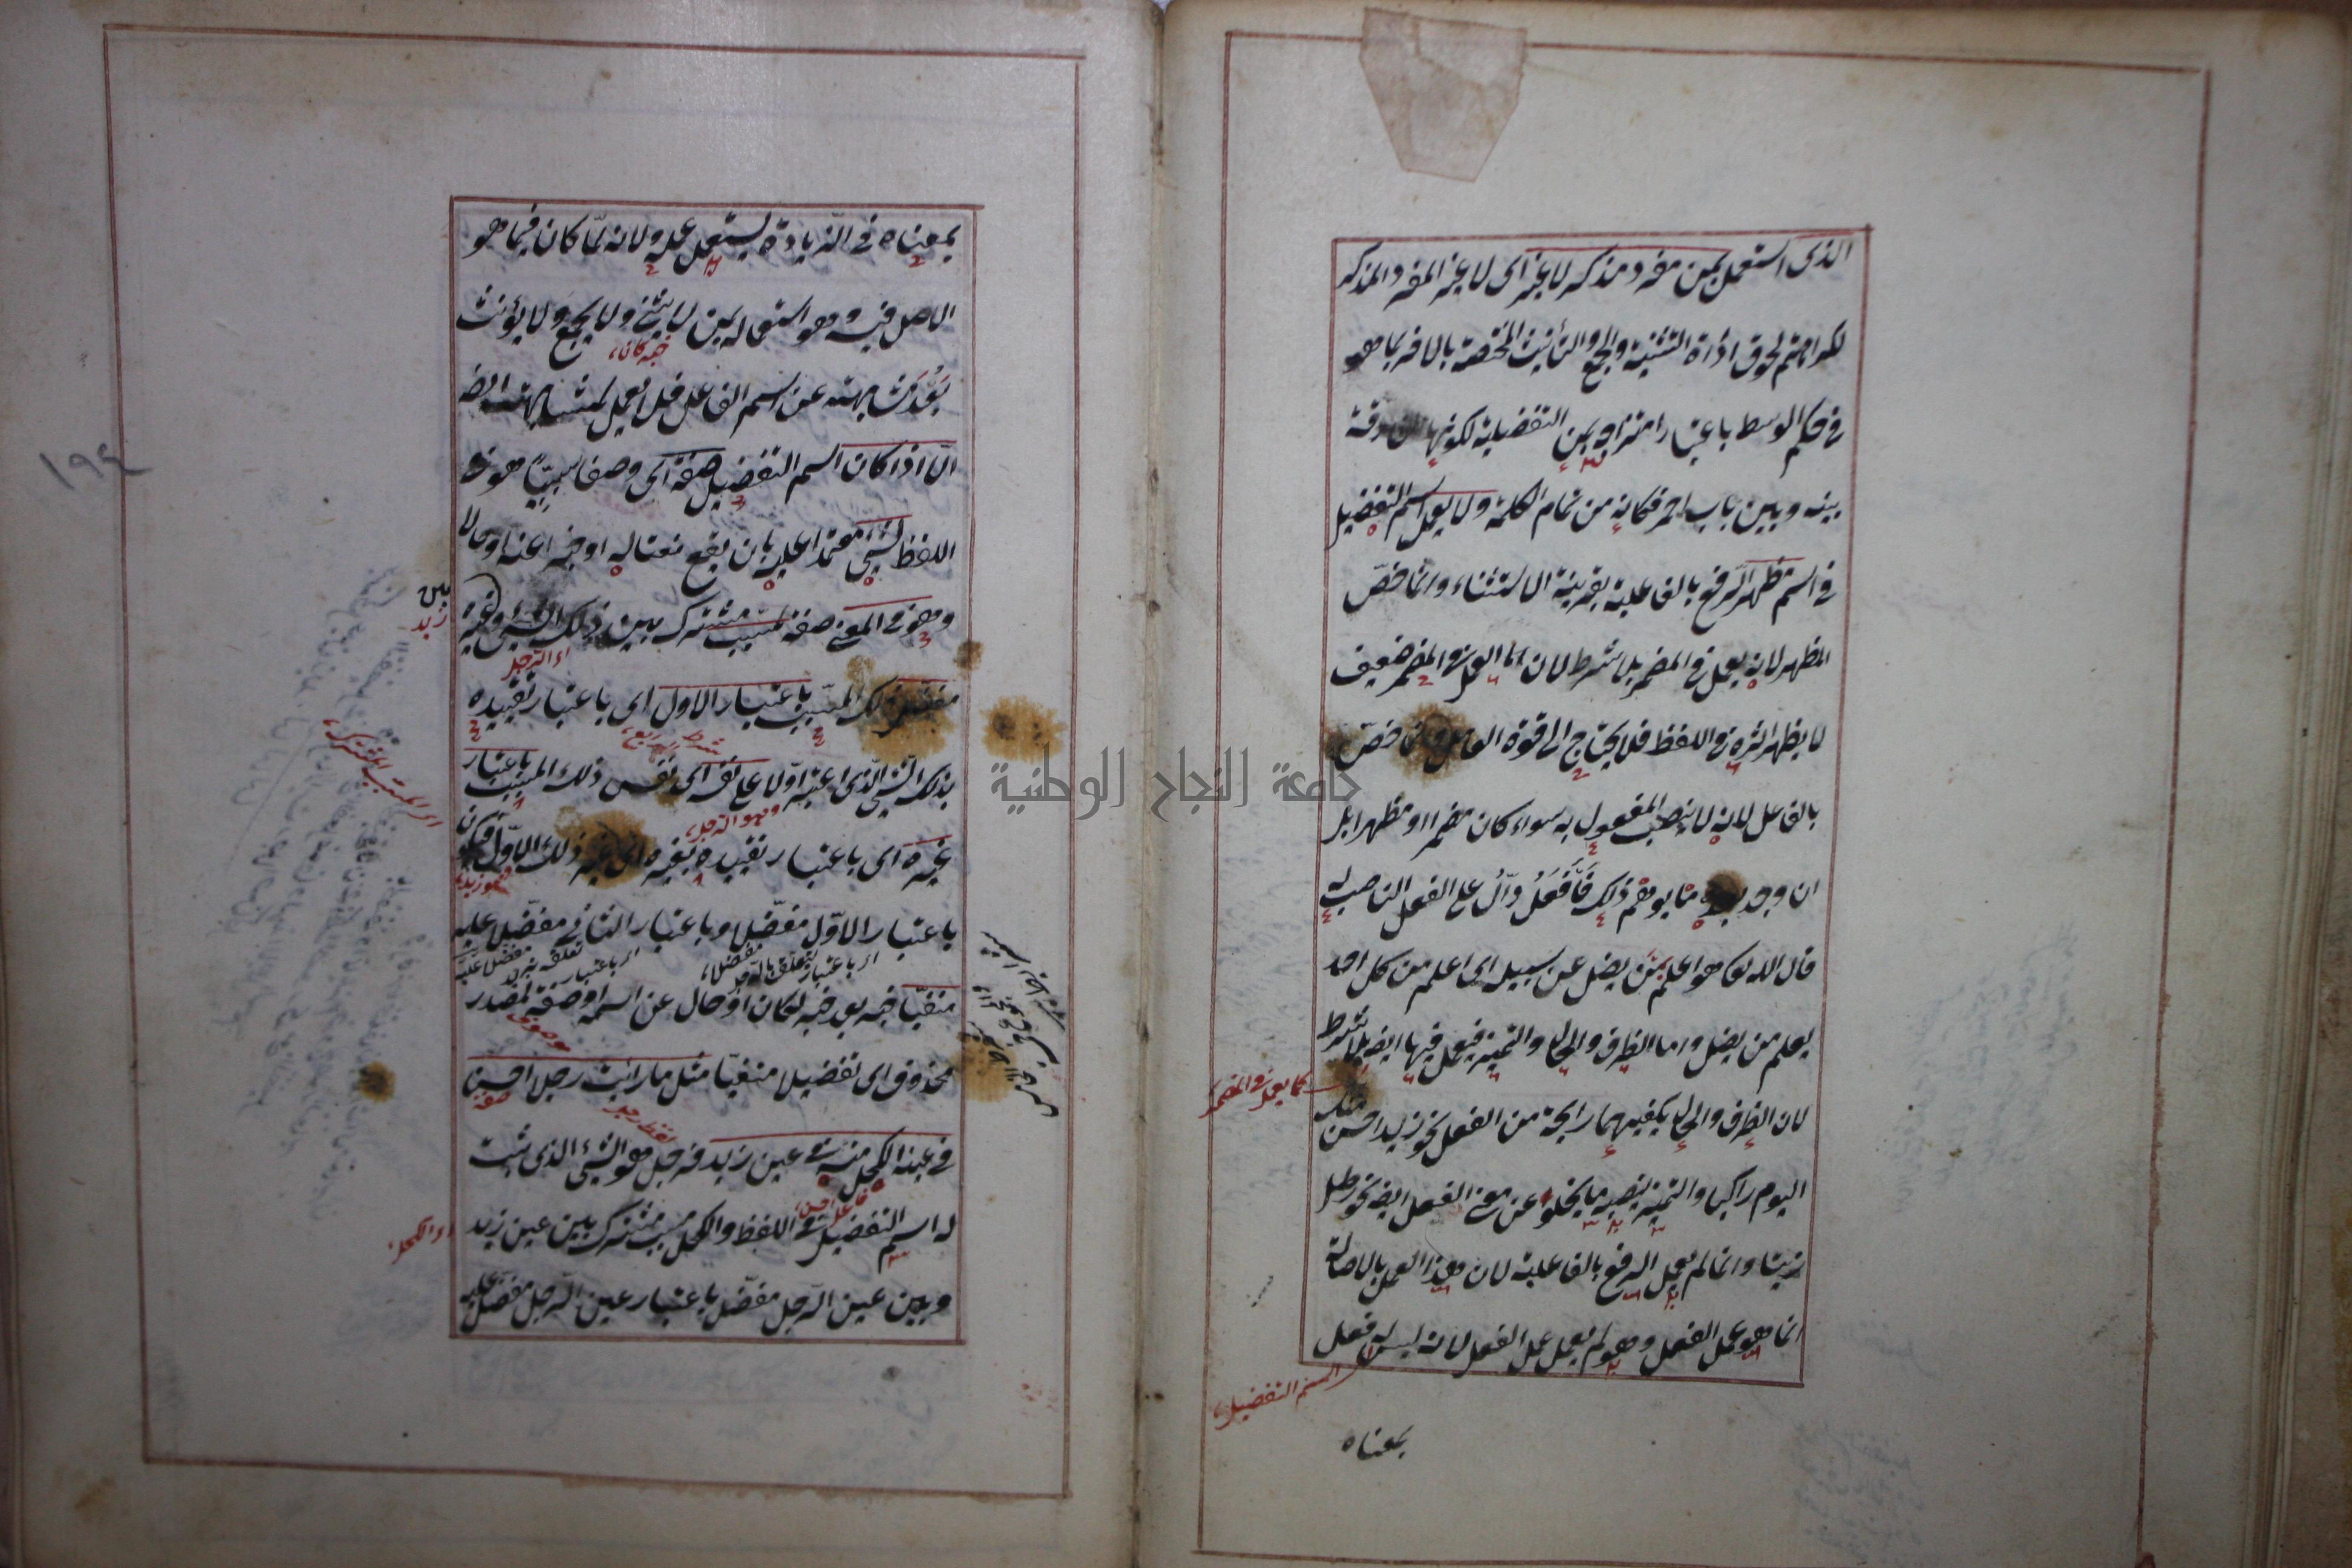 الذى استعمل بمن مفرد مذكر لا غير اى لا غير المفرد المذكر
لكراهتهم لحوق اداة التثنية والجمع والتأنيث المختصة بالاخر بما هو
فى حكم الوسط باعتبار امتزاجه بمن التفضيلية لكونها الفارقة
بينه وبين باب احمر فكانه من تمام الكلمة ولا يعمل اسم التفضيل
فى اسم مظهر الرفع بالفاعلية بقرينة الاستثناء وانما خص
المظهر لانه يعمل فى المضمر بلا شرط لان العمل فى المضمر ضعيف
لا يظهر اثره فى اللفظ فلا يحتاج الى قوة العامل وانما خص
بالفاعل لانه لا ينصب المفعول به سواء كان مضمرا او مظهرا بل
ان وجد بعده ما يوهم ذلك فافعل دال على الفعل الناصب له
قال الله تعالى هو اعلم من يضل عن سبيله اى اعلم من كل احد
يعلم من يضل واما الظرف والحال والتمييز فيعمل فيها ايضا بلا شرط
كما يعمل فى المضمر
لان الظرف والحال يكفيهما رايحة من الفعل نحو زيد احسن منك
اليوم راكبا والتمييز ينصبه ما يخلو عن معنى الفعل ايضا نحو رطل
زيتا وانما لم يعمل الرفع بالفاعلية لان هذا العمل بالاصالة
انما هو عمل الفعل وهو لم يعمل عمل الفعل لانه ليس له فعل
اسم التفضيل
بمعناه
بمعناه فى الزيادة ليستعمل عمله ولانه لما كان فيما هو
الاصل فيه وهو استعماله بمن لا يثنى ولا يجمع ولا يؤنث
خبر كان
بعد مشابهته عن اسم الفاعل فلا يعمل لمشابهته ايضا
١٩٤
الا اذا كان اسم التفضيل صفة اى وصفا سببيا هو فى
اللفظ لشئ معتمدا عليه بان يقع نعتا له او خبرا عنه او حالا
وهو فى المعنى صفة لمسبب مشترك بين ذلك الشئ وغيره
بين
زيد
اى الرجل
مفضل ذلك المسبب باعتبار الاول اى باعتبار تقييده
اى المسبب المشترك
بذلك الشئ الذى اعتبر اولا على نفسه اى نفس ذلك المسبب باعتبار
وهو الرجل
غيره اى باعتبار تقييده بغيره اى غير ذلك الاول فيكون
وهو زيد
باعتبار الاول مفضلا وباعتبار الثانى مفضلا عليه
اى باعتبار تعلقه بالرجل مفضلا
اى باعتبار تعلقه بزيد مفضل عليه
منفيا خبر بعد خبر لكان او حال عن اسمه او صفة لمصدر
موصوف
محذوف اى تفضيلا منفيا مثل ما رايت رجلا احسن
صفة
لفظ رجل
فى عينه الكحل منه فى عين زيد فرجل هو الشئ الذى ثبت
فاعل احسن
له اسم التفضيل فى اللفظ والكحل مسبب مشترك بين عين زيد
اى الكحل
وبين عين الرجل مفضل باعتبار عين الرجل مفضل عليه
جامعة النجاح الوطنية